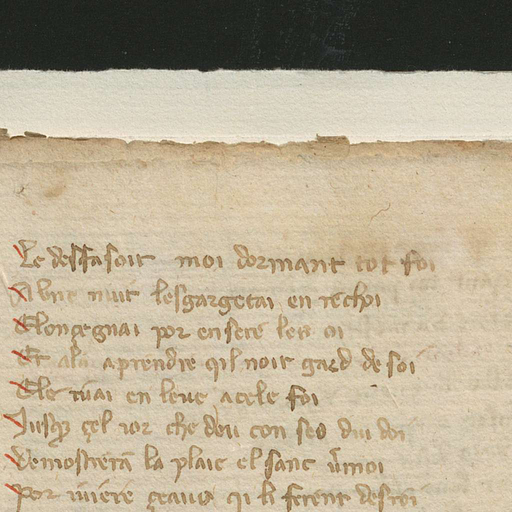 Le desfasoit moi dormant tot foi
Une nuit lesgargetai en rechoi
Elonçegnai por ensere les oi
Et ala aprendre qil noit gard de soi
Ele tuai en leue acele foi
Jusqp çel ior che deu con seo dui doi
Demostrera la plaie el sanc umoi
Por iuiere çeaus qi li ferent desroi